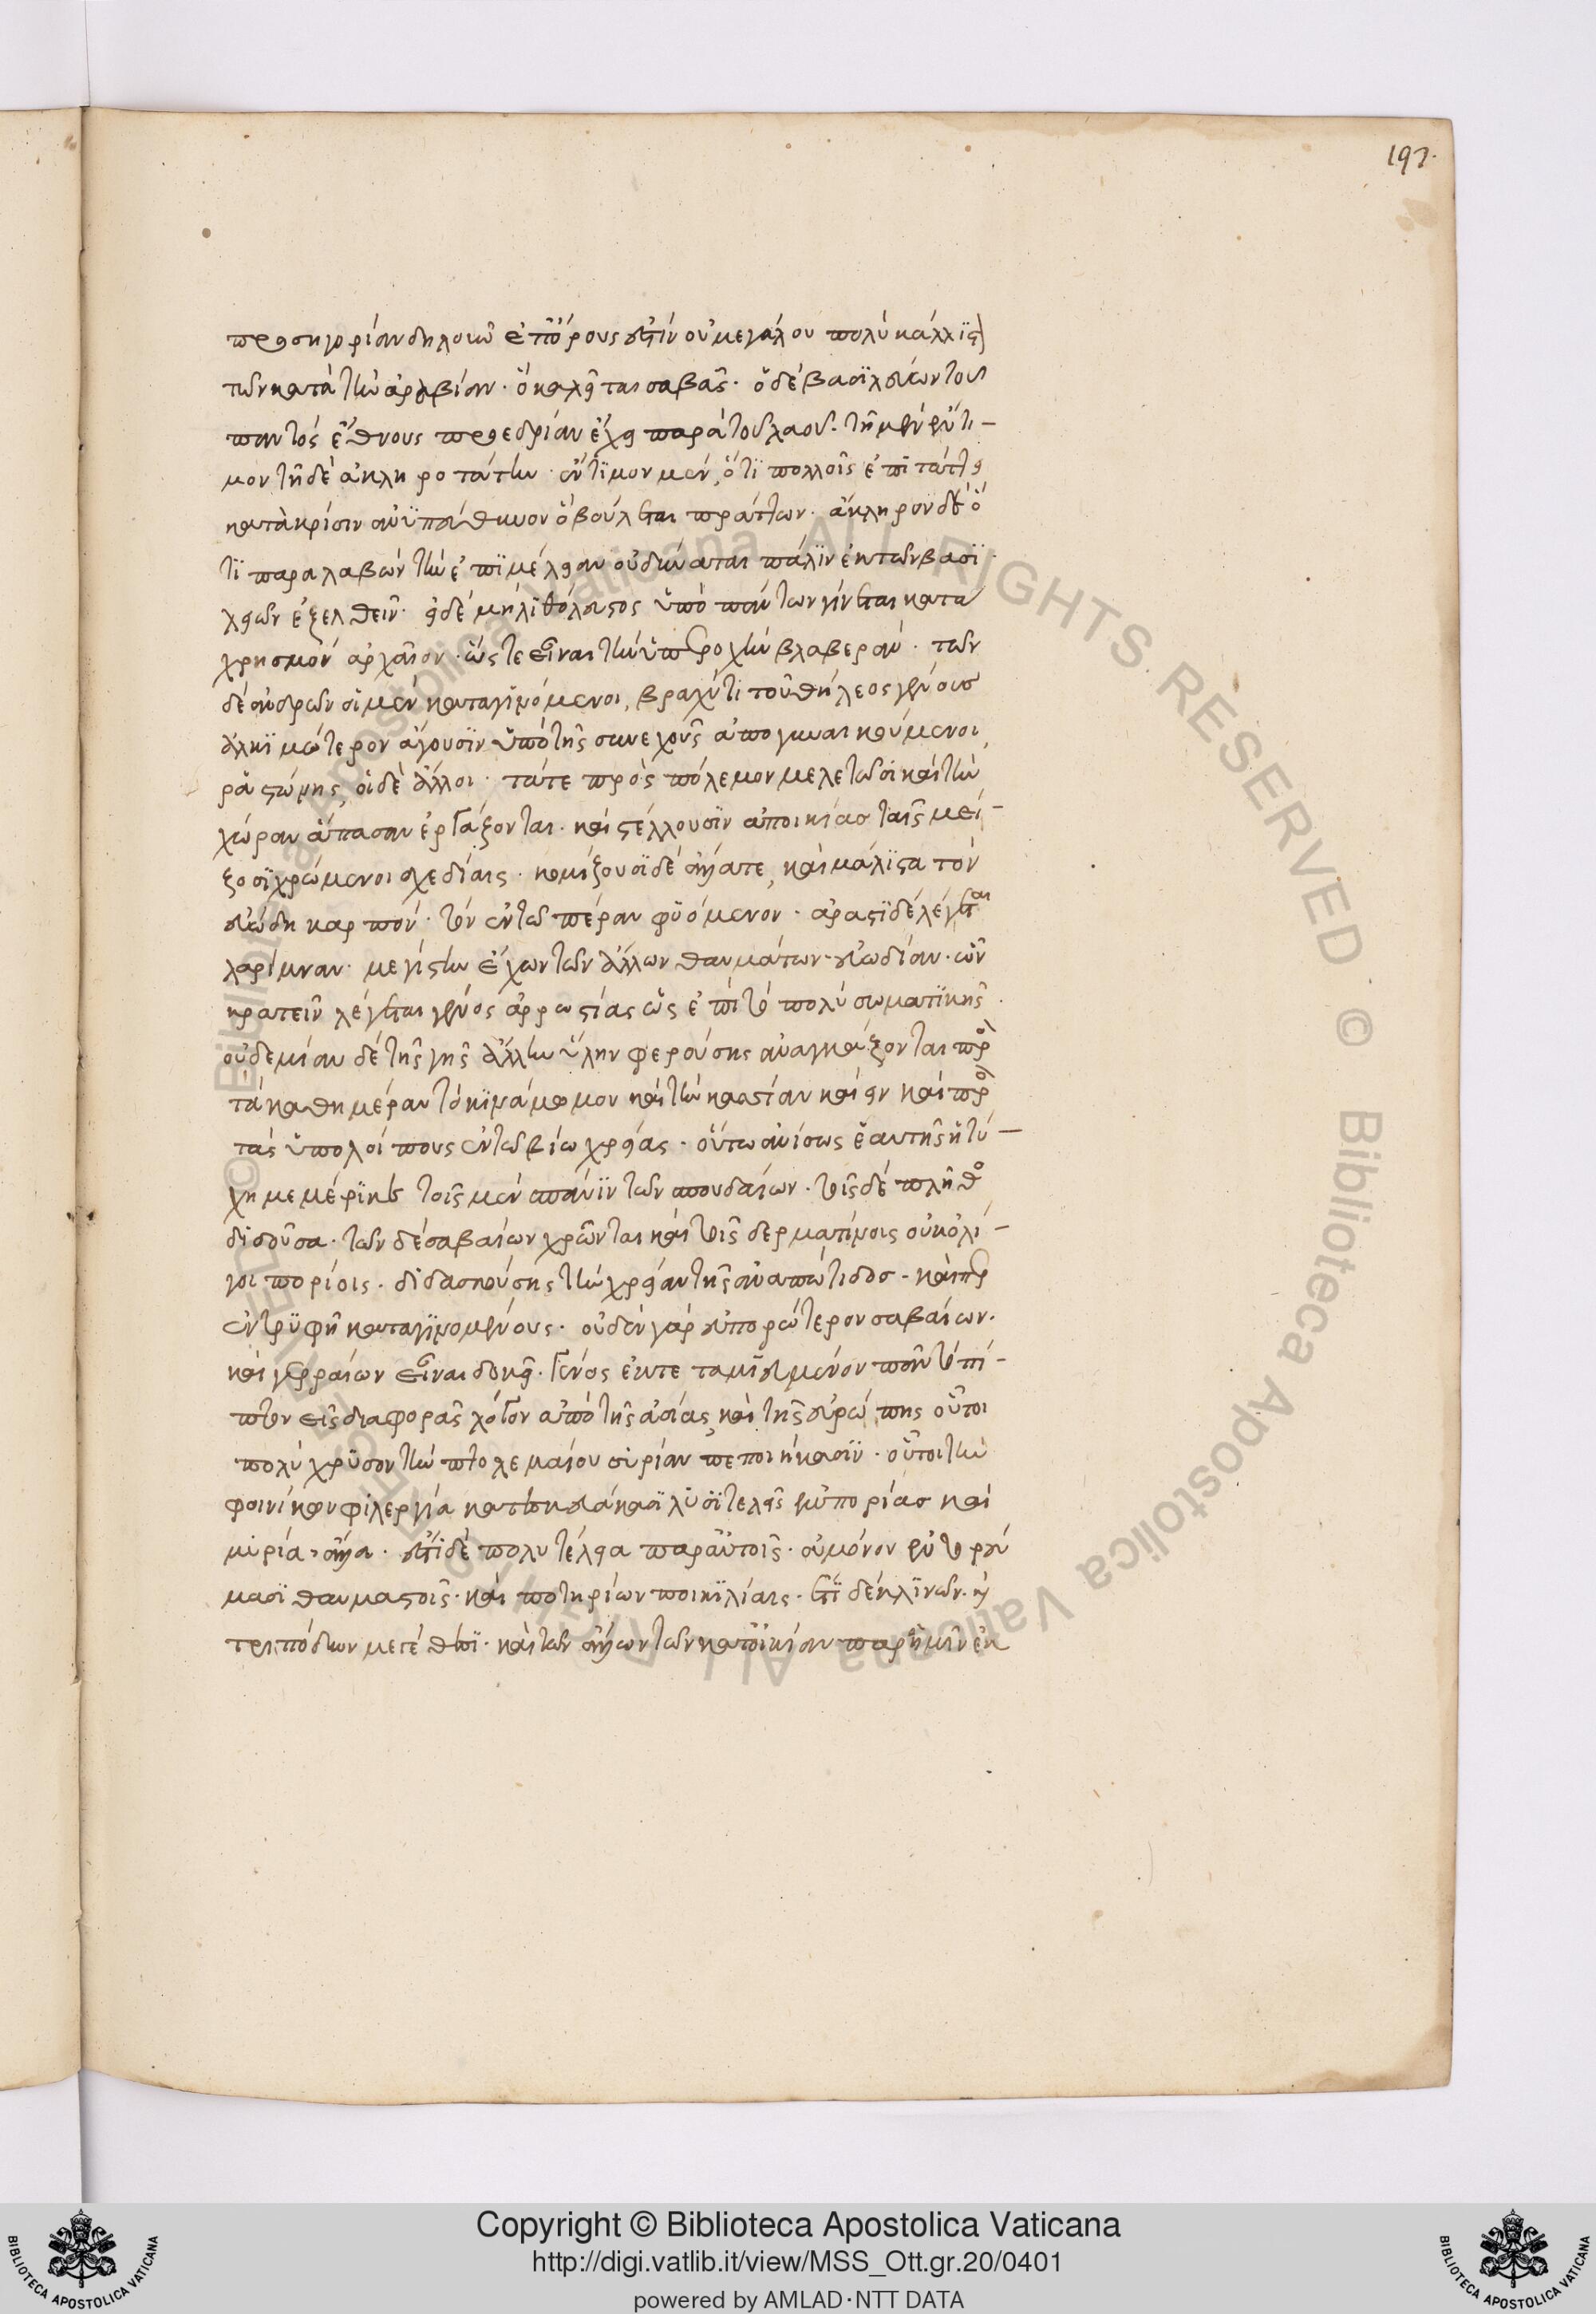 197.
προσηγορίαν δηλοῦν ἐπ' ὄρους ἐστὶν οὐ μεγάλου πολὺ καλλίστη
τῶν κατὰ τὴν ἀραβίαν. ὃ καλεῖται σαβᾶς. ὁ δὲ βασιλεύων τοῦ
παντὸς ἔθνους προεδρίαν ἔχει παρὰ τοῦ λαοῦ. τῆ μὲν ἔντι-
μον τῆ δὲ ἀκληροτάτην. ἔντιμον μέν, ὅτι πολλοῖς ἐπιτάττει
κατὰ κρίσιν ἀνυπεύθυνον ὃ βούλεται πράττων. ἄκληρον δὲ ὅ
τι παραλαβὼν τὴν ἐπιμέλειαν οὐ δύναται πάλιν ἐκ τῶν βασι
λείων ἐξελθεῖν. εἰ δὲ μὴ λιθόλευστος ὑπὸ πάντων γίνεται κατὰ
χρησμὸν ἀρχαῖον. ὥστε εἶναι τὴν ὑπεροχὴν βλαβεράν. τῶν
δὲ ἀνδρῶν οἱ μὲν καταγινόμενοι, βραχύ τι τοῦ θήλεος γένους
ἀλκιμώτερον ἄγουσιν ὑπὸ τῆς συνεχοῦς ἀπογυναικούμενοι,
ῥαστώνης, οἱ δὲ ἄλλοι. τά τε πρὸς πόλεμον μελετῶσι καὶ τὴν
χώραν ἅπασαν ἐργάζονται. καὶ στέλλουσιν ἀποικίας ταῖς μεί-
ζοσι χρώμενοι σχεδίαις. κομίζουσι δὲ ἄλλά τε, καὶ μάλιστα τὸν
εὐώδη καρπόν. τὸν ἐν τῶ πέραν φυόμενον. ἀραστὶ δὲ λέγεται
λαρίμναν. μεγίστην ἔχων τῶν ἄλλων θαυμάτων εὐωδίαν. ὧν
κρατεῖν λέγεται γένος ἀρρωστίας ὡς ἐπὶ τὸ πολὺ σωματικῆς.
οὐδεμίαν δὲ τῆς γῆς ἄλλην ὕλην φερούσης ἀναγκάζονται πρὸς
τὰ καθημέραν τὸ κινάμωμον καὶ τὴν κασσίαν καίειν καὶ πρὸς
τὰς ὑπολοίπους ἐν τῶ βίω χρείας. οὕτω ἀνίσως ἑαυτῆς ἡ τύ-
χη μεμέρικε τοῖς μὲν σπάνιν τῶν σπουδαίων. τοῖς δὲ πλῆθος
διδοῦσα. τῶν δὲ σαβαίων χρῶνται καὶ τοῖς δερματίνοις οὐκ ὀλί-
γοι πορίοις. διδασκούσης τὴν χρείαν τῆς ἀναπώτιδος. καίπερ
ἐν τρυφῆ καταγινομένους. οὐδὲν γὰρ εὐπορώτερον σαβαίων.
καὶ γερραίων εἶναι δοκεῖ. γένος ἔκτε ταμιευμένον πᾶν τὸ πί-
πτον εἰς διαφορᾶς χότον ἀπὸ τῆς ἀσίας καὶ τῆς εὐρώπης οὗτοι
πολὺ χρυσον τὴν πτολεμαίου συρίαν πεποιήκασιν. οὗτοι τὴν
φοινίκων φιλεργία κατεσκευάκασι λυσιτελεῖς ἐμπορίας καὶ
μυρία ἄλλα. ἔστι δὲ πολυτέλεια παρ' αὐτοῖς. οὐ μόνον ἐν τορεύ
μασι θαυμαστοῖς. καὶ ποτηρίων ποικιλίαις. ἔτι δὲ κλινῶν. καὶ
τριπόδων μεγέθει. καὶ τῶν ἄλλων τῶν κατ' οἰκίαν παρ' ἡμῖν ἐκ
Copyright © Biblioteca Apostolica Vaticana
http://digi.vatlib.it/view/MSS_Ott.gr.20/0401
powered by AMLAD·NTT DATA
© Biblioteca Apostolica Vaticana ALL RIGHTS RESERVED
BIBLIOTECA APOSTOLICA VATICANA
BIBLIOTECA APOSTOLICA VATICANA